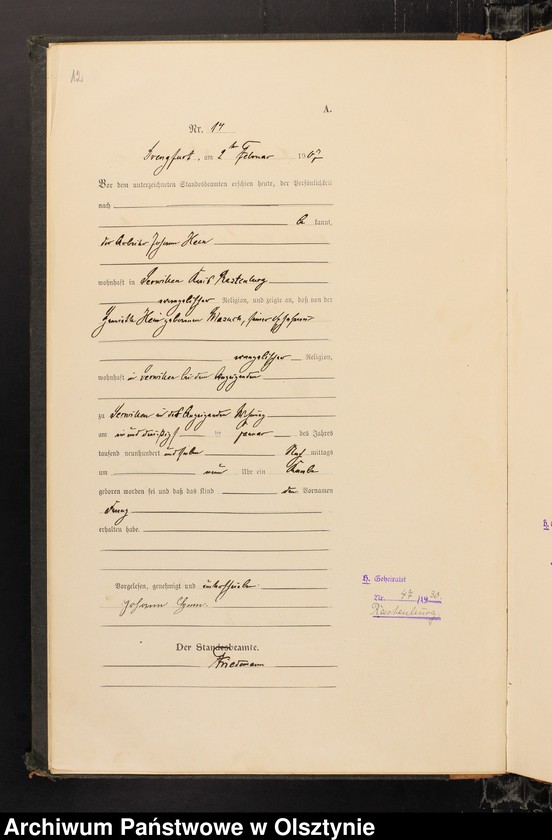 12.
A.
Nr. 17
Drengfurt, am 2ten Februar 1907
Vor dem unterzeichneten Standesbeamten erschien heute, der Persönlichkeit
nach
be kannt,
der Arbeiter Johann
wohnhaft in Serwillen Kreis Rastenburg
evangelischer Religion, und zeigte an, daß von der
geborenen seiner Ehefrau
evangelischer Religion,
wohnhaft in Serwillen bei dem Anzeigenden
zu Serwillen in des Anzeigenden Wohnung
am ein und dreißigsten Januar des Jahres
tausend neunhundert und sieben Nach mittags
um neun Uhr ein Knabe
geboren worden sei und daß das Kind den Vornamen
Franz
erhalten habe.
Vorgelesen, genehmigt und unterschrieben
Johann
Der Standesbeamte.
Friedemann
H. Geheiratet
Nr. 47/1930.
Rastenburg
Archiwum Państwowe w Olsztynie